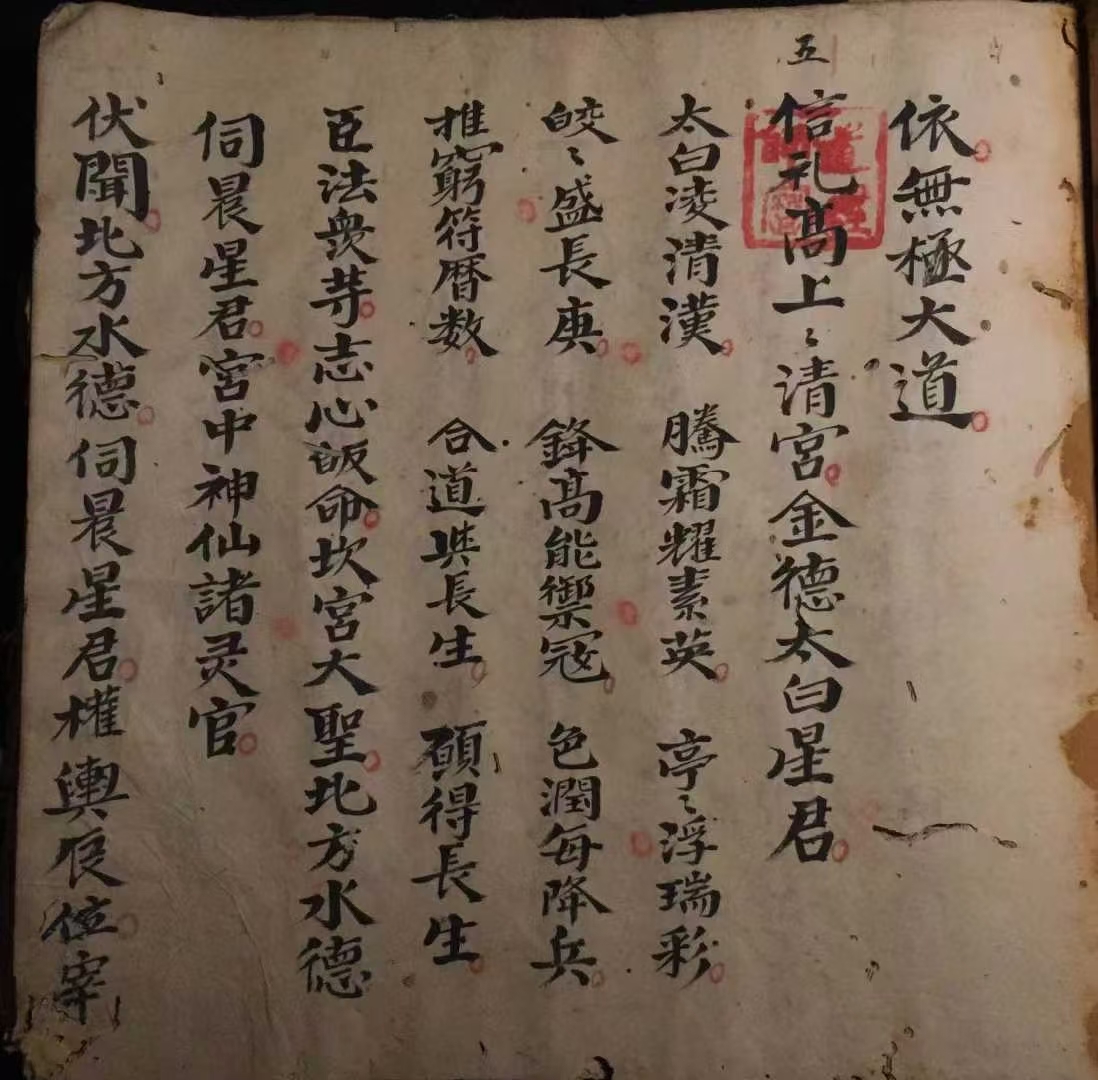 依無極大道
五
信礼高上〻清宮金德太白星君
太白凌清漢 騰霜耀素英 亭〻浮瑞彩
皎〻盛長庚 鋒高能禦冦 色潤每降兵
推窮符曆数 合道共長生 願得長生
臣法衆䒭志心皈命坎宮大聖北方水德
伺晨星君宮中神仙諸灵官
伏聞北方水德伺晨星君權輿辰位宰